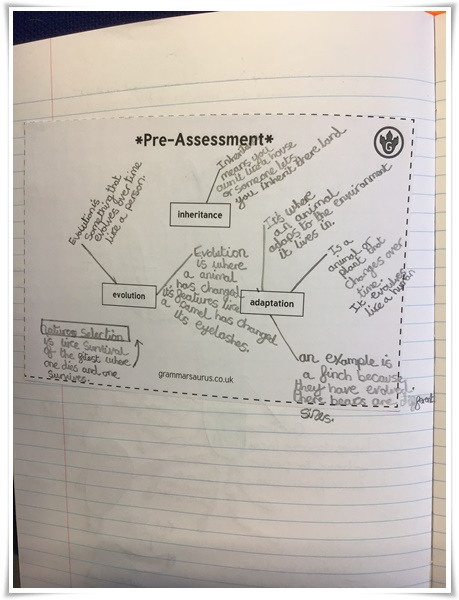 *Pre-Assessment*
G
Inherit
means you
own it like a house
or someone lets
you inherit there land
inheritance
Evolution is
something that
evolves over time
like a person.
It's where
an animal
adaps to the environment
it lives in.
Is a
animal or
plant that
changes over
time.
It evovles
like a human
Evolution
is where
a animal
has changed
its features like
a camel has changed
its eyelashes.
evolution
adaptation
Natures Selection
is like survival
of the fitest where
one dies and one
survives.
an example is
a finch because
they have evolved
there beaks are different
sizes.
grammarsaurus.co.uk